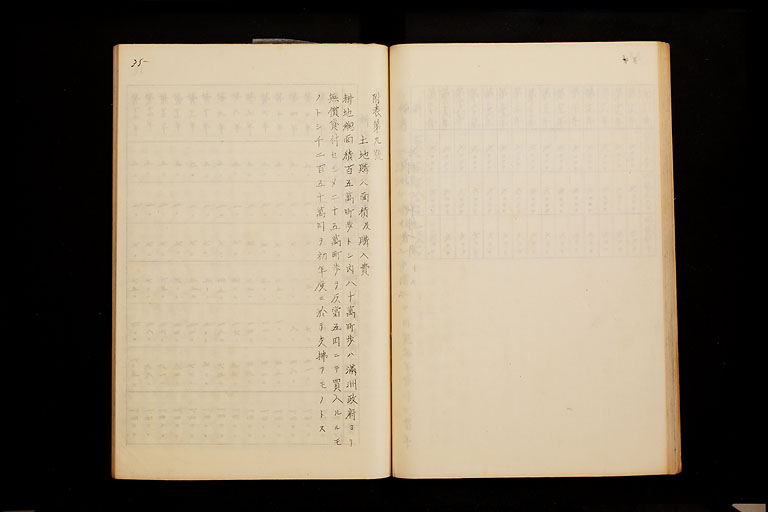 附表第九號
土地購入面積及購入費
耕地總面積百五萬町步トシ内八十萬町步ハ滿洲政府ヨリ
無償貸付セシメ二十五萬町步ヲ反當五円ニテ買入ルルモ
ノトシ千二百五十萬円ヲ初年度ニ於テ支拂フモノトス
35